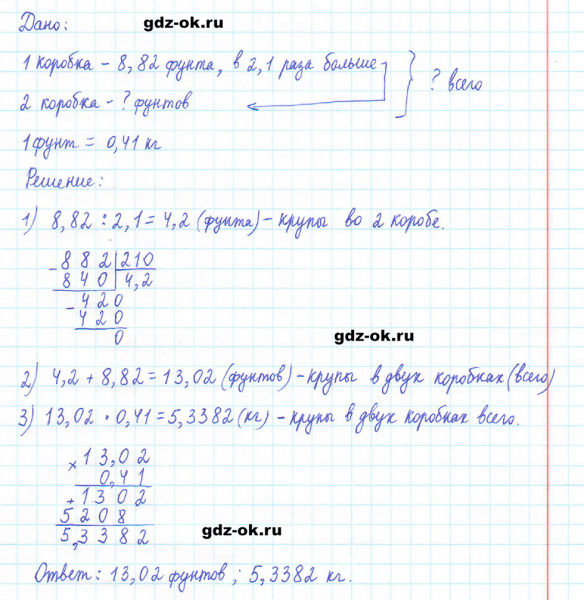 gdz-ok.ru
Дано:
1 коробка - 8,82 фунта, в 2,1 раза больше
2 коробка - ? фунтов
? всего
1 фунт = 0,41 кг
Решение:
1) 8,82 : 2,1 = 4,2 (фунта) - крупы во 2 коробе.
- 8 8 2 | 210
8 4 0 | 4,2
- 4 2 0
4 2 0
0
gdz-ok.ru
2) 4,2 + 8,82 = 13,02 (фунтов) - крупы в двух коробках (всего)
3) 13,02 · 0,41 = 5,3382 (кг) - крупы в двух коробках всего.
× 1 3,0 2
0,4 1
+ 1 3 0 2
5 2 0 8
5,3 3 8 2
gdz-ok.ru
Ответ: 13,02 фунтов; 5,3382 кг.